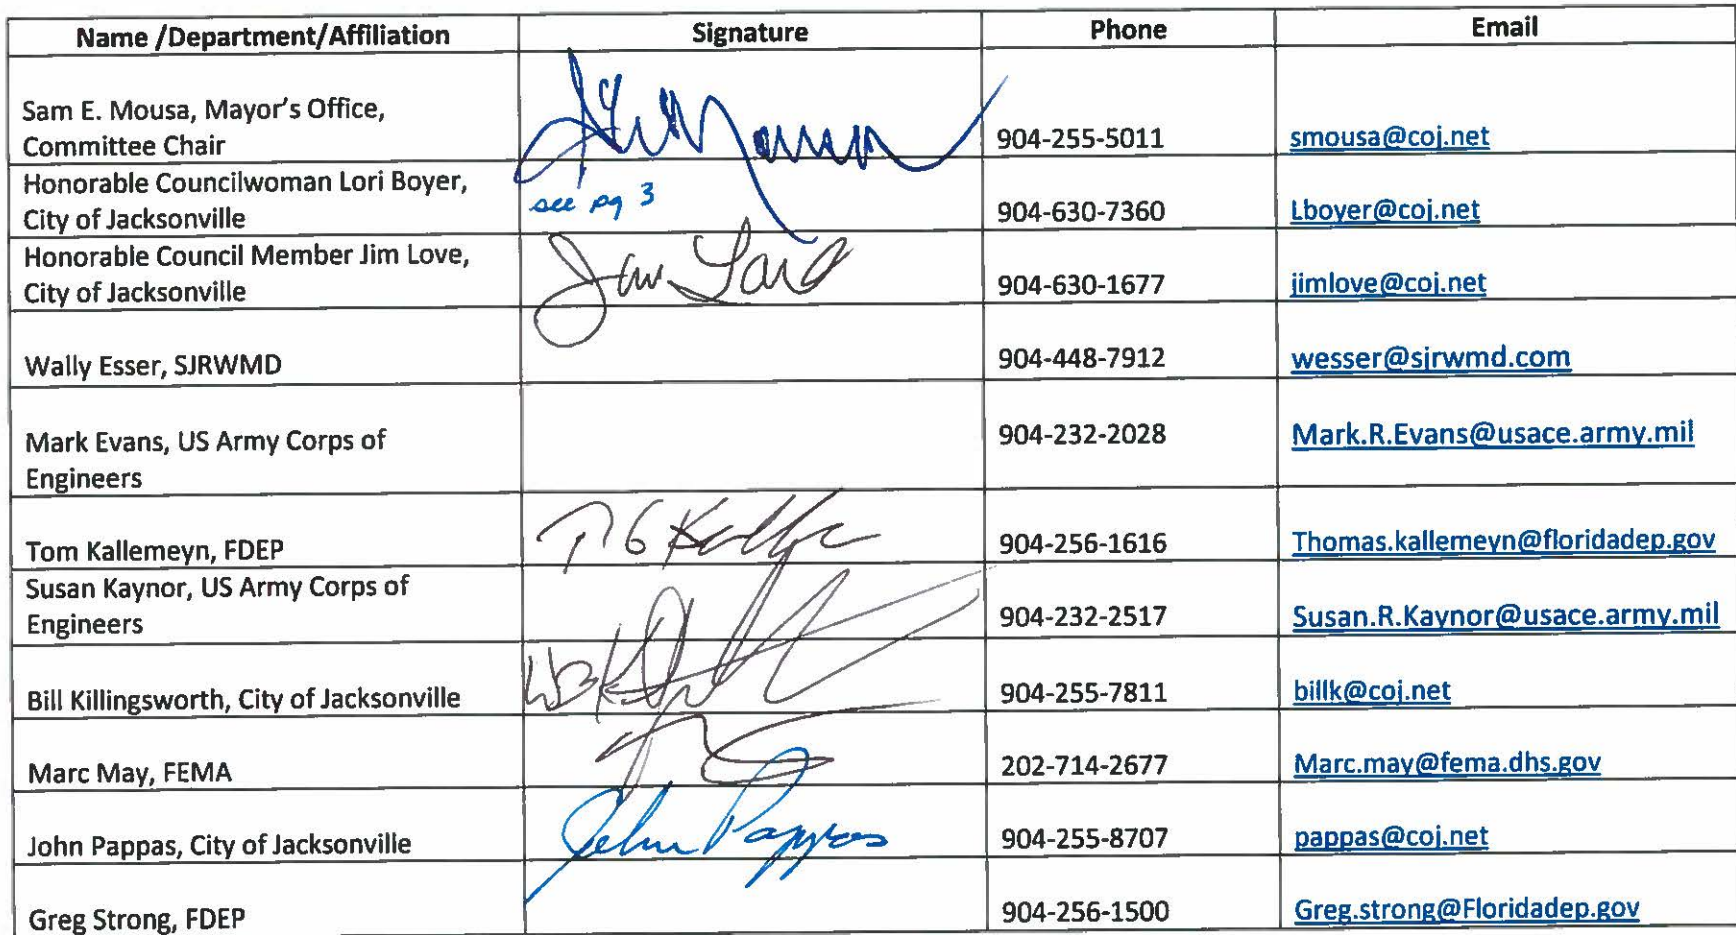 Name /Department/Affiliation Signature Phone Email
Sam E. Mousa, Mayor's Office,
Committee Chair 904-255-5011 smousa@coj.net
Honorable Councilwoman Lori Boyer,
City of Jacksonville see pg 3 904-630-7360 Lboyer@coj.net
Honorable Council Member Jim Love,
City of Jacksonville 904-630-1677 jimlove@coj.net
Wally Esser, SJRWMD 904-448-7912 wesser@sjrwmd.com
Mark Evans, US Army Corps of
Engineers 904-232-2028 Mark.R.Evans@usace.army.mil
Tom Kallemeyn, FDEP 904-256-1616 Thomas.kallemeyn@floridadep.gov
Susan Kaynor, US Army Corps of
Engineers 904-232-2517 Susan.R.Kaynor@usace.army.mil
Bill Killingsworth, City of Jacksonville 904-255-7811 billk@coj.net
Marc May, FEMA 202-714-2677 Marc.may@fema.dhs.gov
John Pappas, City of Jacksonville John Pappas 904-255-8707 pappas@coj.net
Greg Strong, FDEP 904-256-1500 Greg.strong@Floridadep.gov